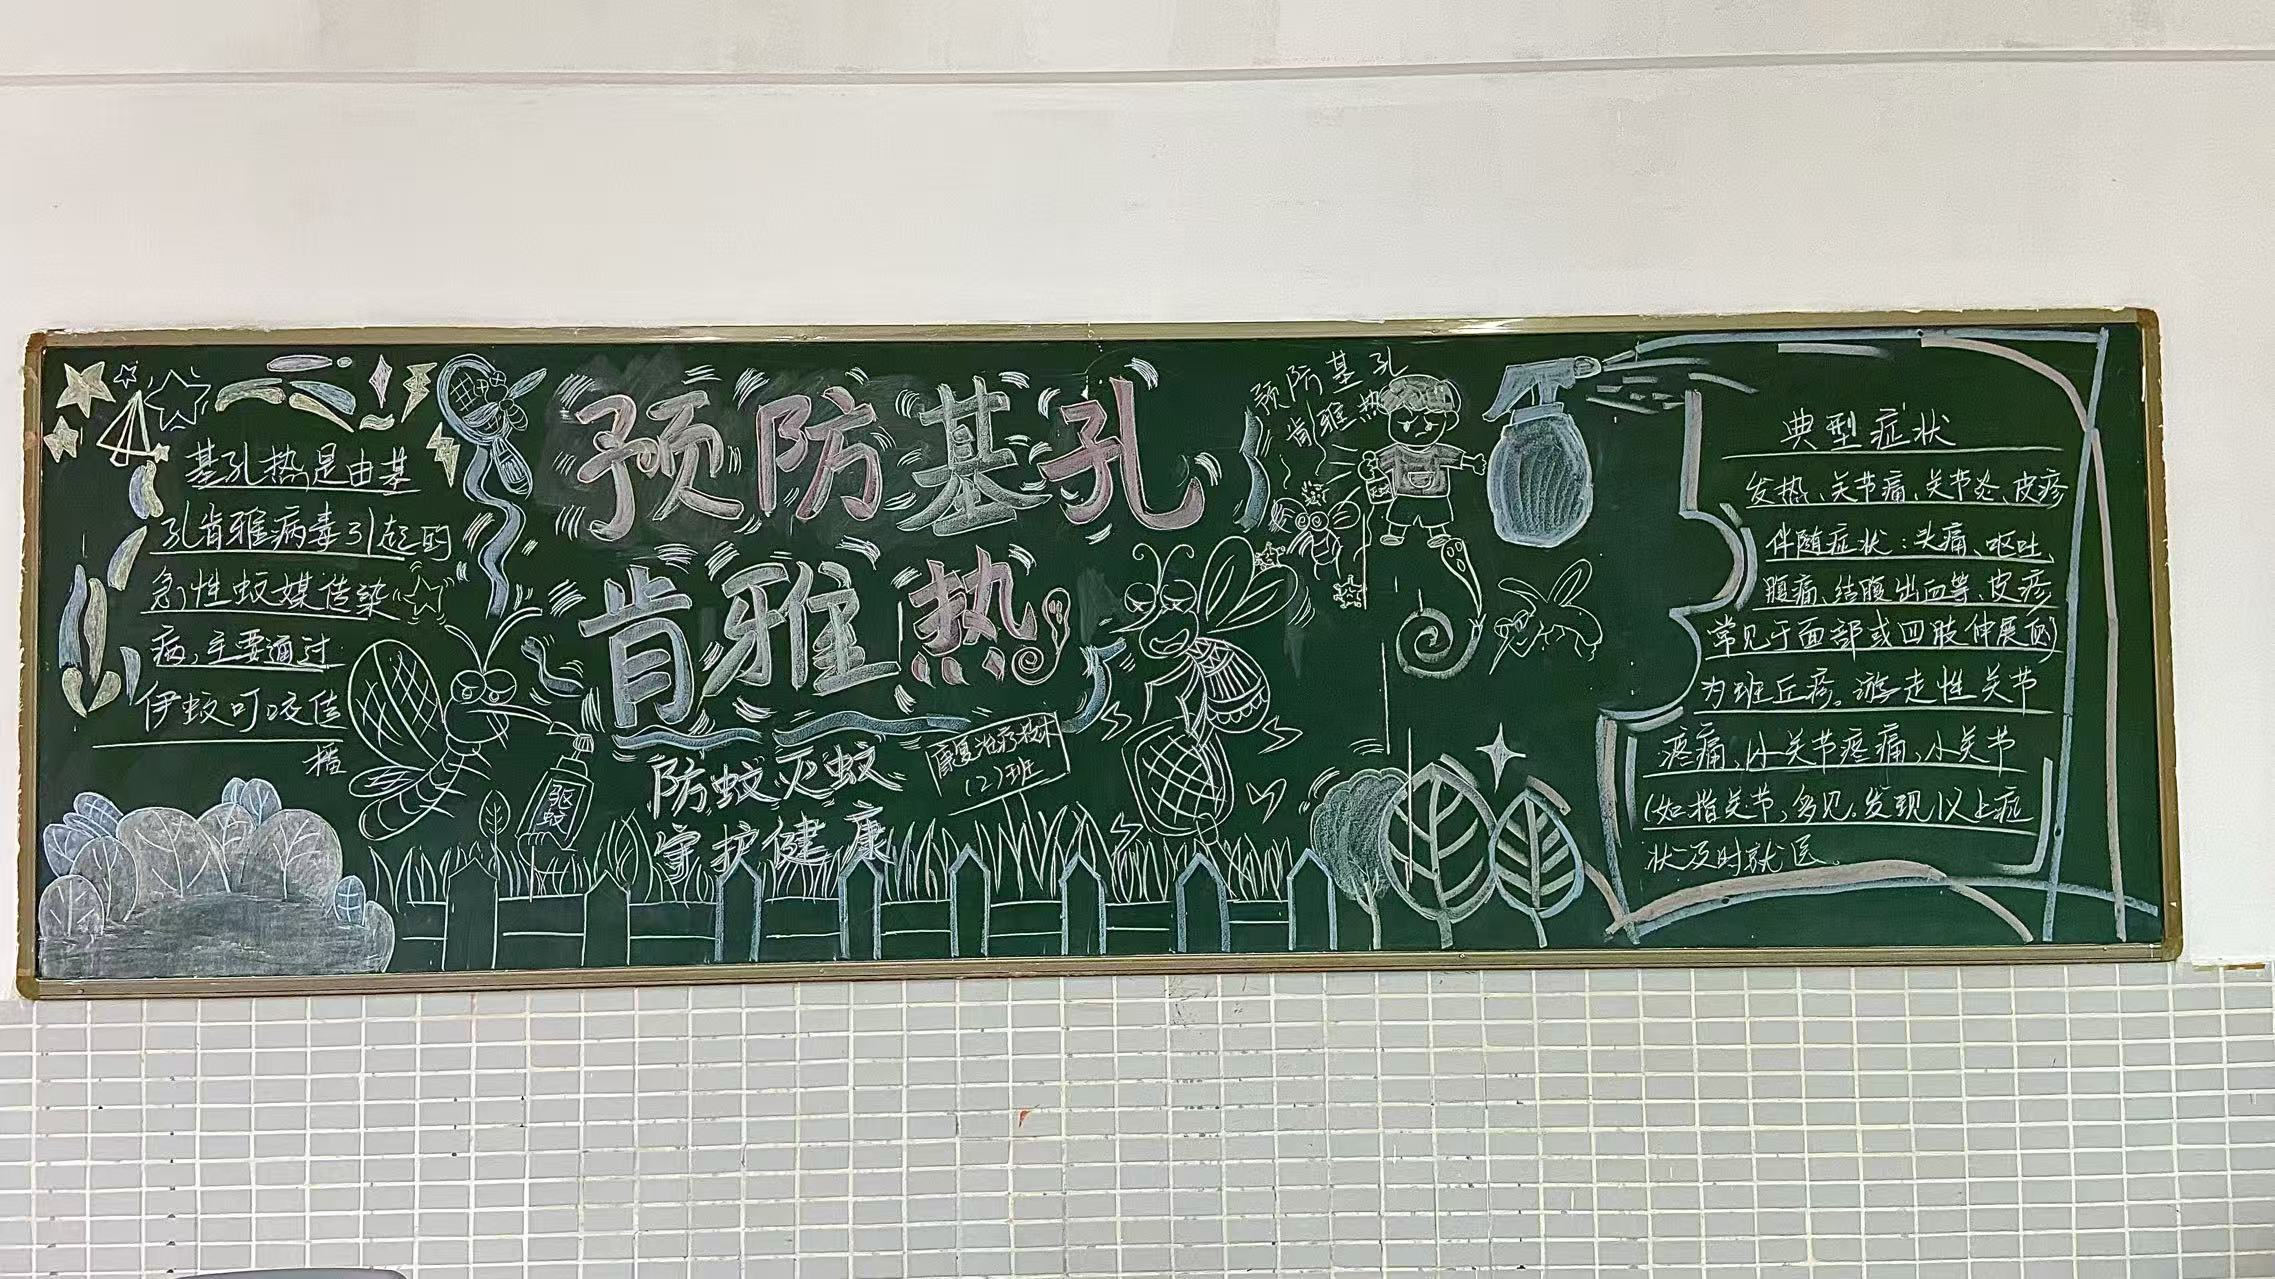 基孔热是由基
孔肯雅病毒引起的
急性蚊媒传染
病,主要通过
伊蚊叮咬传
播
预防基孔
肯雅热
防蚊灭蚊
守护健康
康复治疗技术
(2)班
驱蚊
预防基孔
肯雅热
典型症状
发热、关节痛、关节炎、皮疹
伴随症状:头痛、呕吐
腹痛、结膜出血等、皮疹
常见于面部或四肢伸展侧
为班丘疹。游走性关节
疼痛、小关节疼痛、小关节
(如指关节,多见。发现以上症
状及时就医。